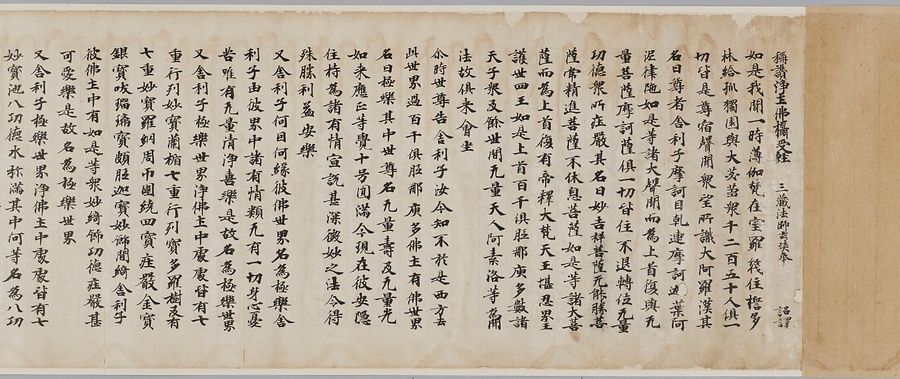 稱讃淨土佛攝受經 三藏法師玄奘奉 詔譯
如是我聞一時薄伽梵在室羅筏住誓多
林給孤獨園與大苾芻衆千二百五十人俱一
切皆是尊宿聲聞衆望所識大阿羅漢其
名曰尊者舍利子摩訶目乹連摩訶迦葉阿
泥律陁如是等諸大聲聞而為上首復與无
量菩薩摩訶薩俱一切皆住不退轉位无量
功德衆所莊嚴其名曰妙吉祥菩薩无能勝菩
薩常精進菩薩不休息菩薩如是等諸大菩
薩而為上首復有帝釋大梵天王堪忍界主
護世四王如是上首百千俱胝那庾多數諸
天子衆及餘世間无量天人阿素洛等為聞
法故俱來會坐
尒時世尊告舍利子汝今知不於是西方去
此世界過百千俱胝那庾多佛土有佛世界
名曰極樂其中世尊名无量壽及无量光
如來應正等覺十号圓滿今現在彼安隱
住持為諸有情宣說甚深微妙之法令得
殊勝利益安樂
又舍利子何因何緣彼佛世界名為極樂舍
利子由彼界中諸有情類无有一切身心憂
苦唯有无量清淨喜樂是故名為極樂世界
又舍利子極樂世界淨佛土中處處皆有七
重行列妙寶蘭楯七重行列寶多羅樹及有
七重妙寶羅網周帀圍繞四寶莊嚴金寶
銀寶吠瑠璃寶頗胝迦寶妙飾間綺舍利子
彼佛土中有如是等衆妙綺飾功德莊嚴甚
可愛樂是故名為極樂世界
又舍利子極樂世界淨佛土中處處皆有七
妙寶池八功德水弥滿其中何等名為八功